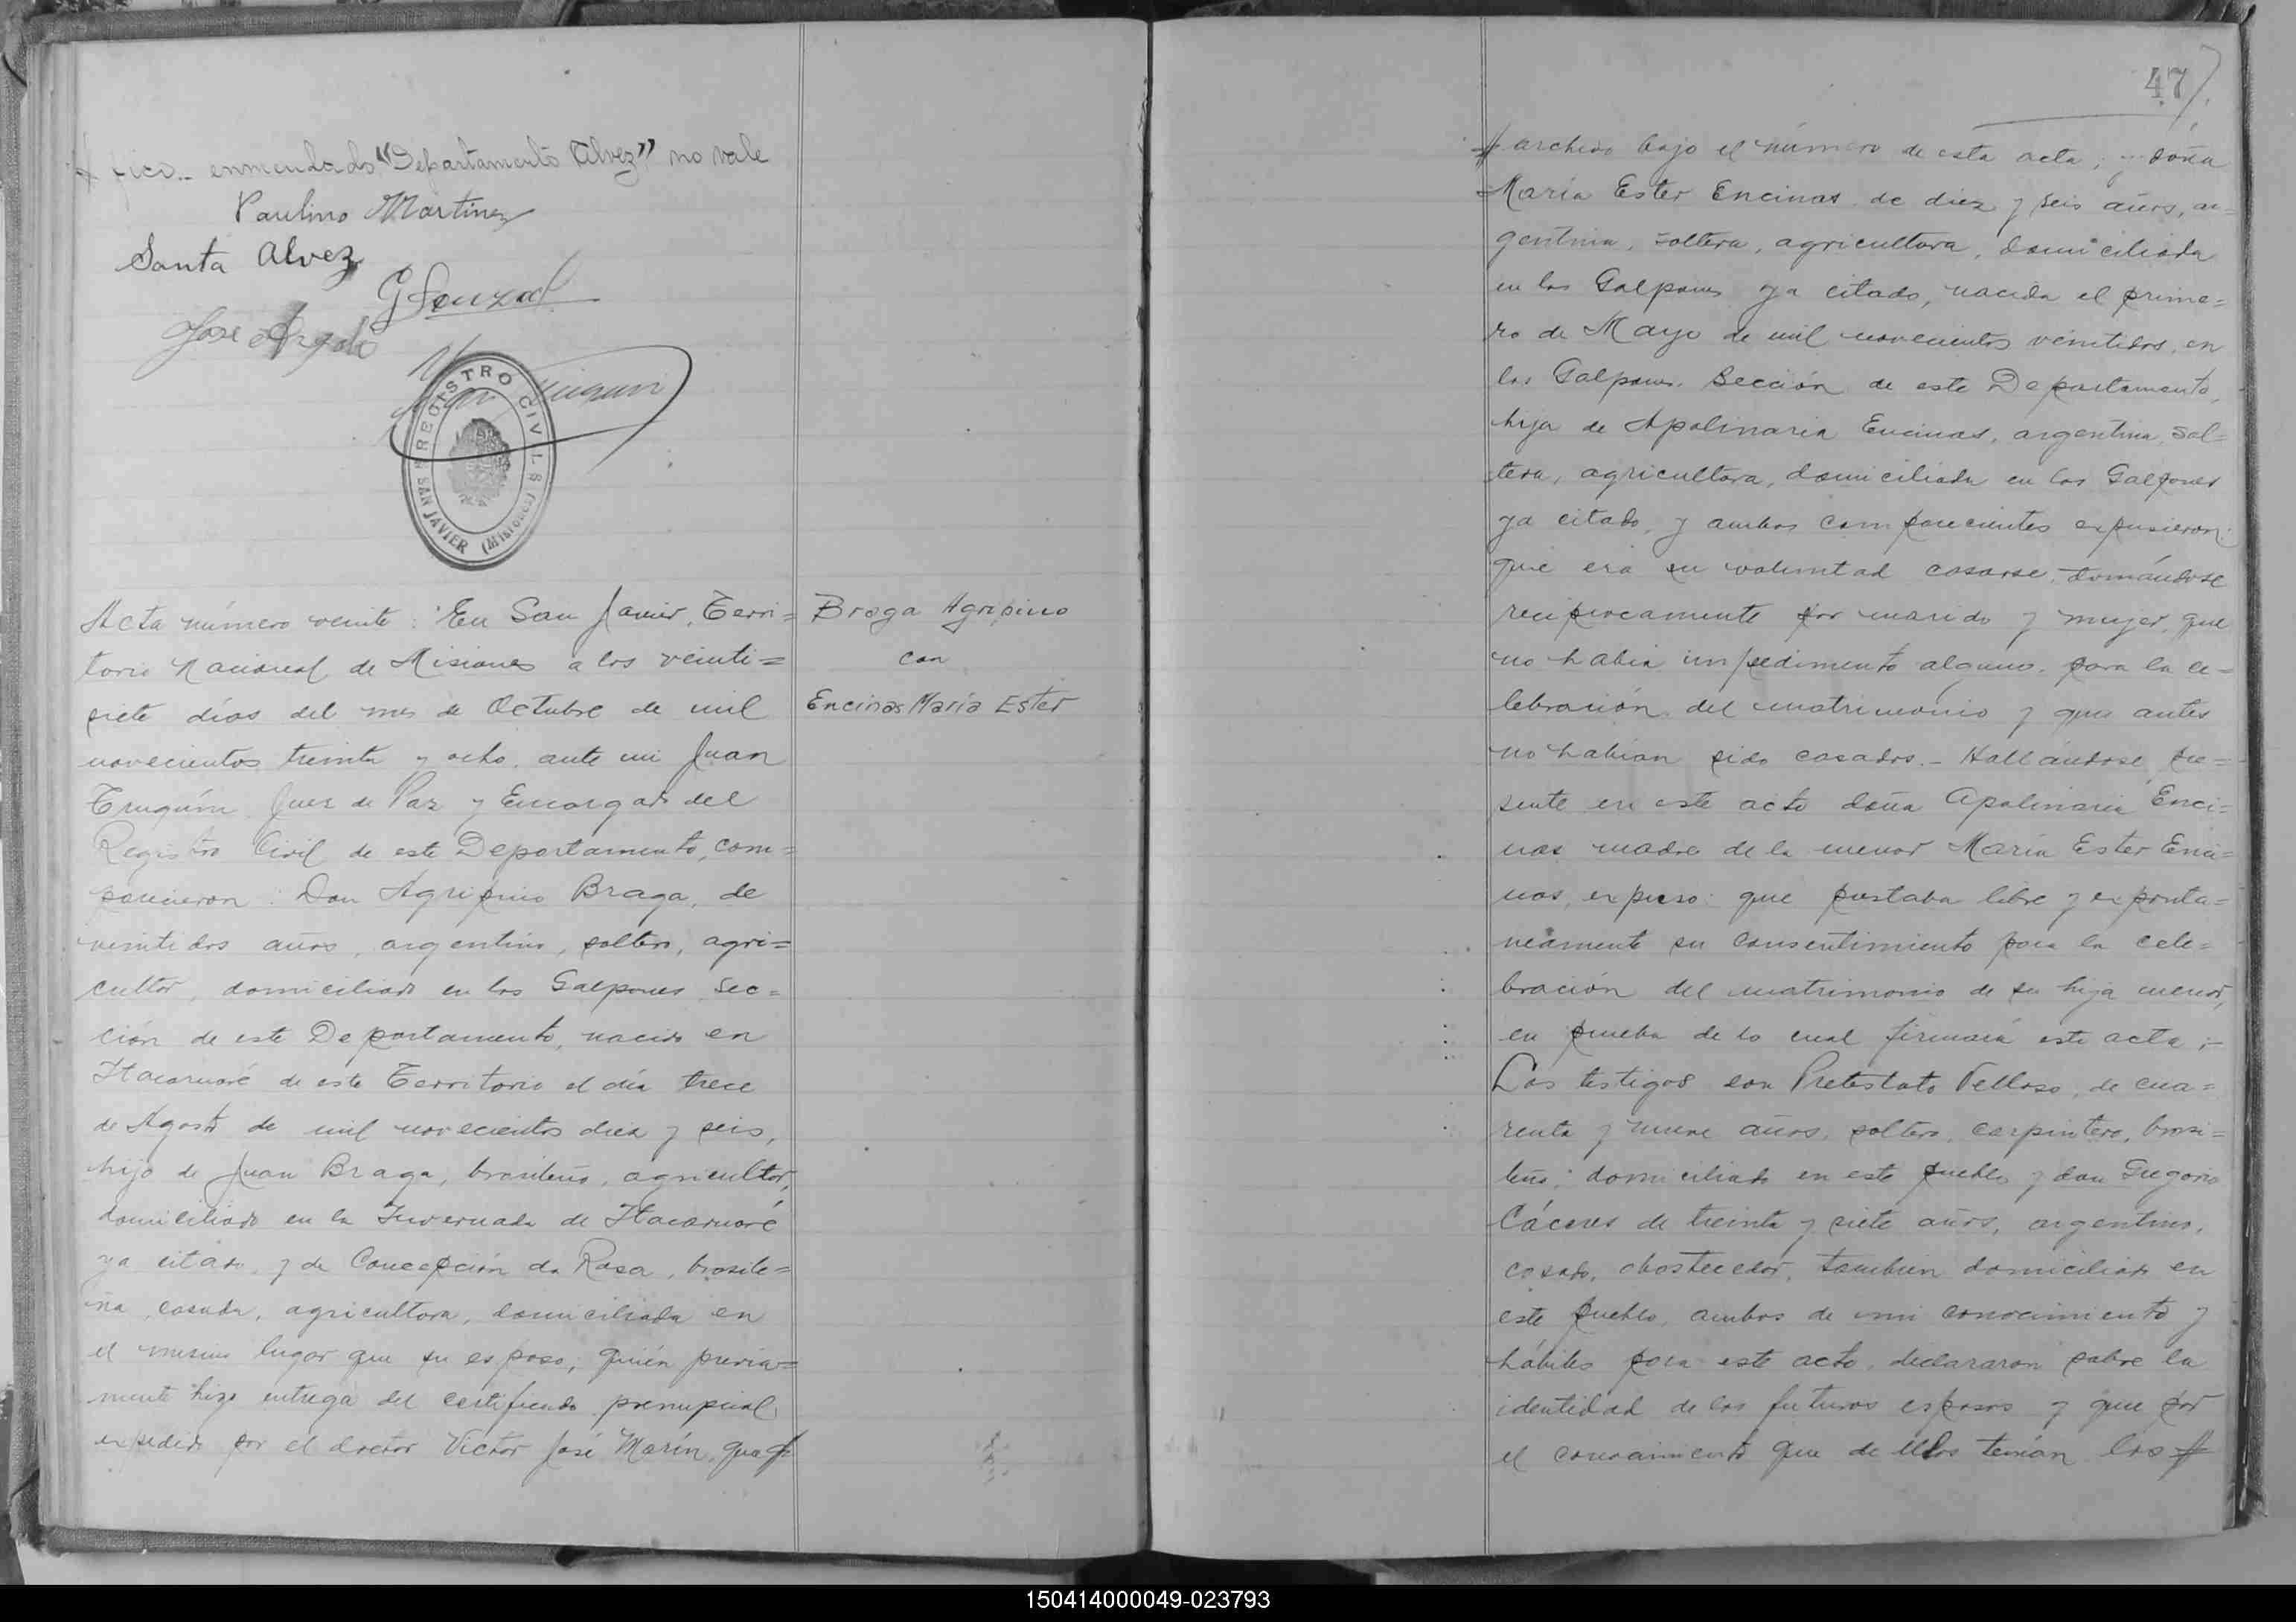 fico.. enmendado "Departamento Alvez" no vale
Paulino Martinez
Santa Alvez
Jose
REGISTRO CIVIL
SAN JAVIER (Misiones)
Acta número veinte: En San Javier, Terri=
torio Nacional de Misiones a los veinti=
siete días del mes de Octubre de mil
novecientos treinta y ocho, ante mi Juan
Truquin Juez de Paz y Encargado del
Registro Civil de este Departamento, com=
parecieron: Don Agripino Braga, de
veintidos años, argentino, soltero, agri=
cultor, domiciliado en los Galpones Sec=
ción de este Departamento, nacido en
Itacaruaré de este Territorio el día trece
de Agosto de mil novecientos diez y seis,
hijo de Juan Braga, brasileño, agricultor,
domiciliado en la Invernada de Itacaruaré
ya citado, y de Concepción da Rosa, brasile=
ña, casada, agricultora, domiciliada en
el mismo lugar que su esposo; quién previa=
mente hizo entrega del certificado prenupcial
expedido por el doctor Victor José Marín, que
Braga Agripino
con
Encinas María Ester
47
archivo bajo el número de esta acta; y doña
María Ester Encinas de diez y seis años, ar=
gentina, soltera, agricultora, domiciliada
en los Galpones ya citado, nacida el prime=
ro de Mayo de mil novecientos veintidos, en
los Galpones, Sección de este Departamento,
hija de Apolinaria Encinas, argentina, sol=
tera, agricultora, domiciliada en los Galpones
ya citado, y ambos comparecientes expusieron:
que era su voluntad casarse, tomándose
reciprocamente por marido y mujer, que
no había impedimento alguno, para la ce=
lebración del matrimonio y que antes
no habían sido casados.- Hallándose pre=
sente en este acto doña Apolinaria Enci=
nas madre de la menor María Ester Enci=
nas, expuso: que prestaba libre y exponta=
neamente su consentimiento para la cele=
bración del matrimonio de su hija menor,
en prueba de lo cual firmará este acta;-
Los testigos don Pretestato Velloso, de cua=
renta y nueve años, soltero, carpintero, brasi=
leño; domiciliado en este pueblo y don Gregorio
Cáceres de treinta y siete años, argentino,
casado, abastecedor, tambien domiciliado en
este pueblo, ambos de mi conocimiento y
hábiles para este acto, declararon sobre la
identidad de los futuros esposos y que por
el conocimiento que de ellos tenían los
150414000049-023793